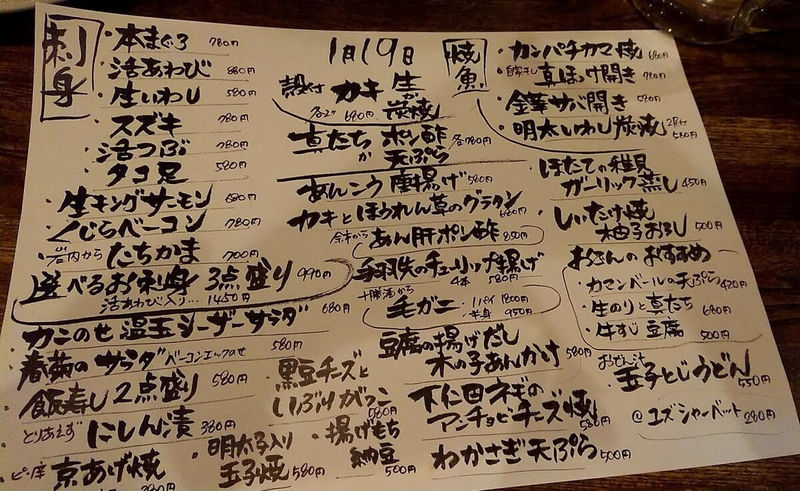 刺身
・本まぐろ 780円
・活あわび 880円
・生いわし 580円
・スズキ 780円
・活つぶ 780円
・タコ足 580円
・生キングサーモン 680円
・くじらベーコン 780円
・岩内から たちかま 700円
選べるお刺身 3点盛り 990円
活あわび入り… 1450円
カニのせ 温玉シーザーサラダ 680円
・春菊のサラダ ベーコンエッグのせ 580円
飯寿し2点盛り 580円
とりあえず にしん漬 380円
京あげ焼 380円
1月19日
殻付 カキ 生か炭焼
各2コ 680円
真たち ポン酢か天ぷら 各780円
あんこう唐揚げ 580円
カキとほうれん草のグラタン 680円
余市から あん肝ポン酢 850円
手羽先のチューリップ揚げ
4本 580円
十勝清から
毛ガニ ・1パイ 1800円
・半身 950円
豆腐の揚げだし
木の子あんかけ 580円
黒豆チーズと
いぶりがっこ 580円
・明太子入り
玉子焼 580円
・揚げもち
納豆 500円
下仁田ネギの
アンチョビチーズ焼 580円
わかさぎ天ぷら 500円
焼魚
・カンパチカマ焼 680円
・自家干し 真ほっけ開き 980円
・金華サバ開き 580円
・明太いわし炭焼 2尾付 580円
・ほたての稚貝
ガーリック蒸し 450円
・しいたけ焼
柚子おろし 500円
おくさんの おすすめ
・カマンベールの天ぷら 420円
・生のりと真たち 680円
・牛すじ豆腐 500円
おせん汁
・玉子とじうどん 550円
@ユズシャーベット 280円